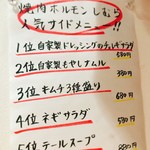 焼肉ホルモンしむら
人気サイドメニュー!!
1位 自家製ドレッシングのチョレギサラダ
580円
2位 自家製もやしナムル
380円
3位 キムチ3種盛り
680円
4位 ネギサラダ
580円
5位 テールスープ